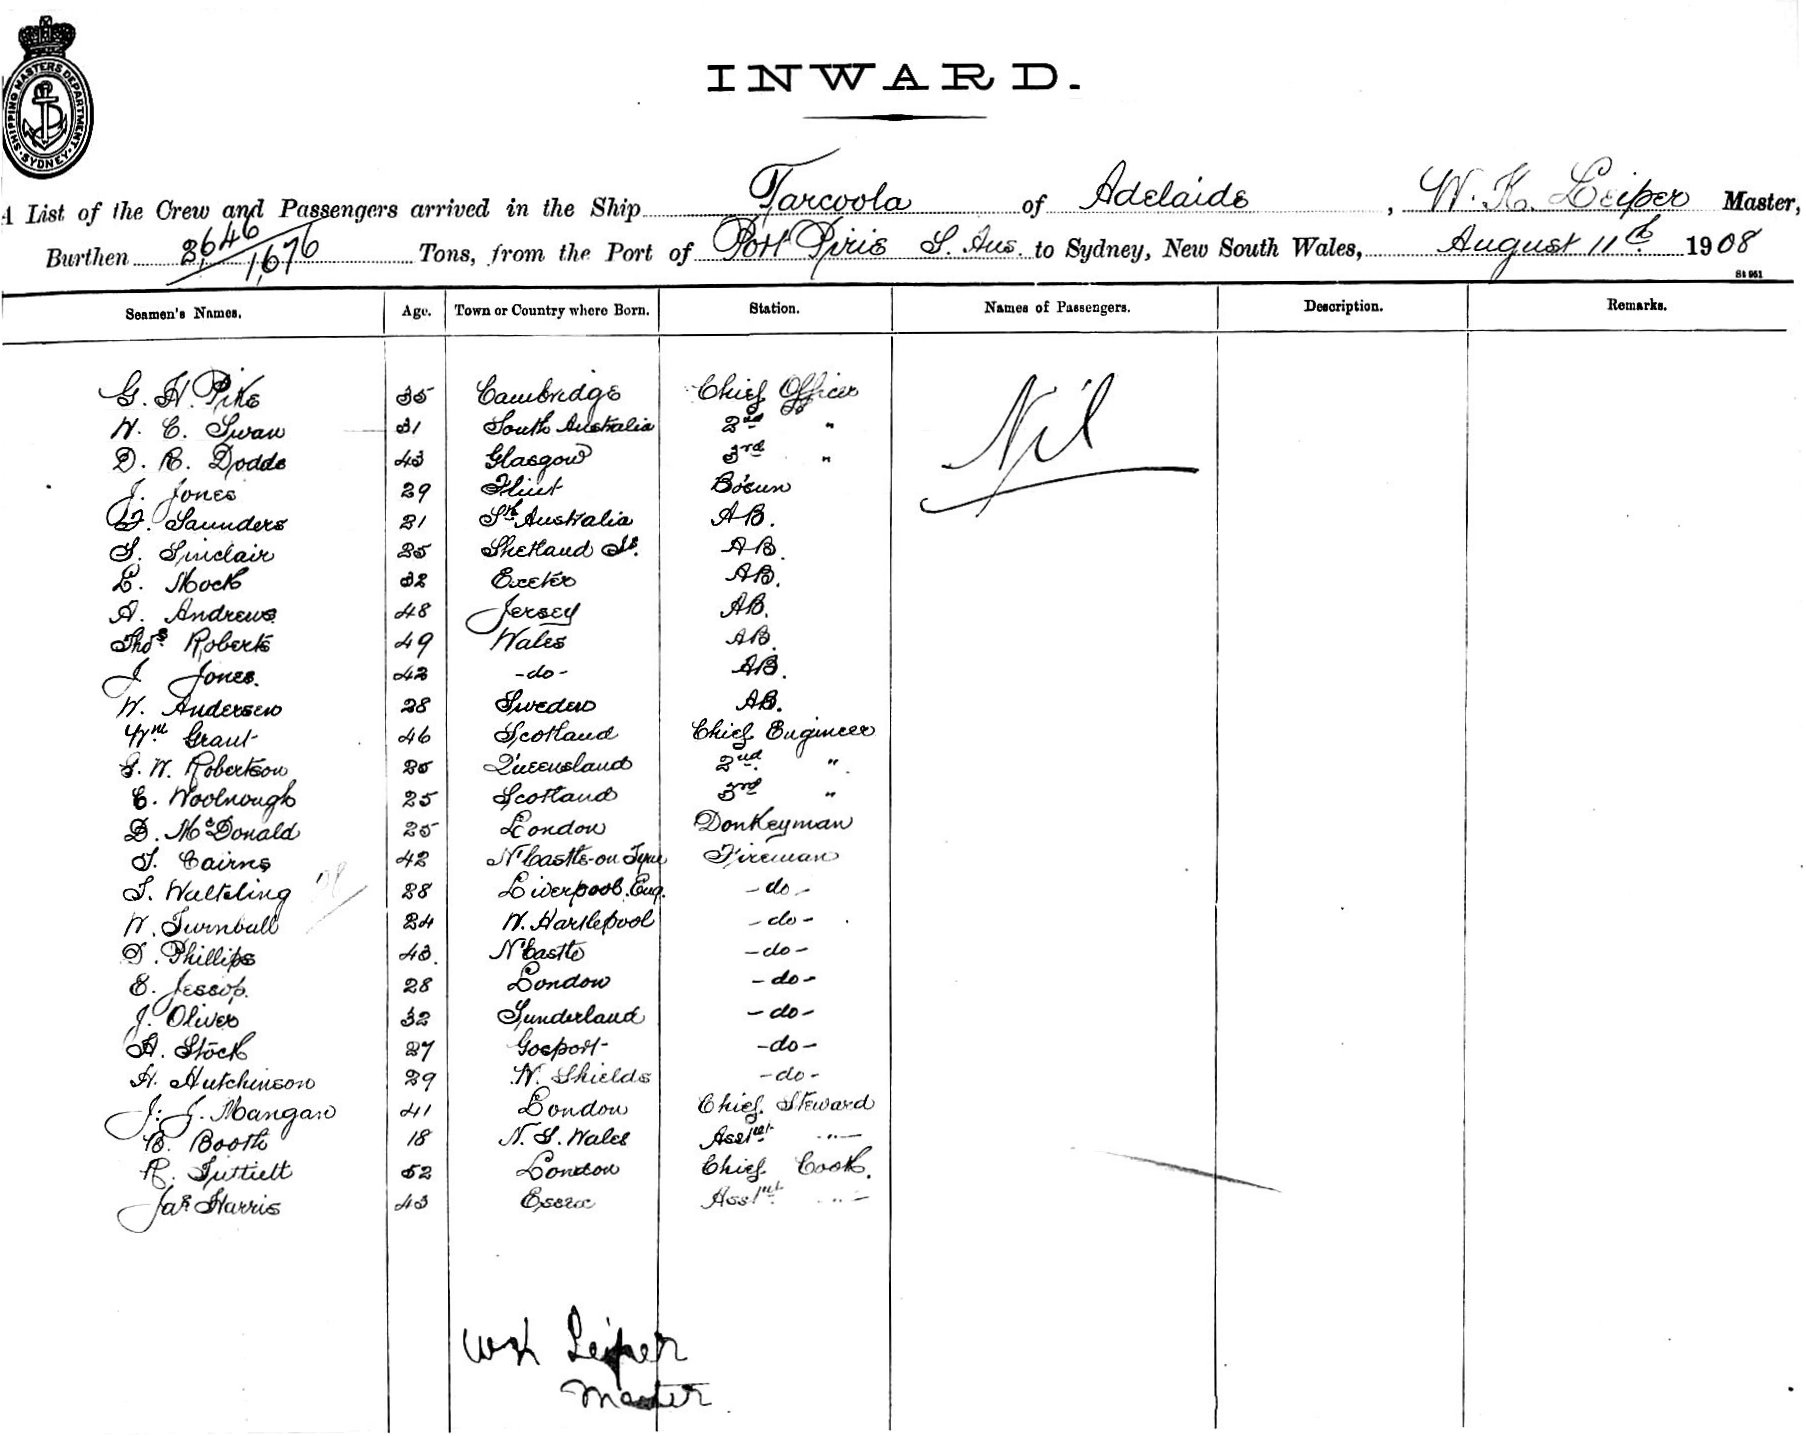 SHIPPING MASTERS DEPARTMENT
SYDNEY
INWARD.
A List of the Crew and Passengers arrived in the Ship Tarcoola of Adelaide, W. K. Leiper Master,
Burthen 2646/1,676 Tons, from the Port of Port Pirie S. Aus. to Sydney, New South Wales, August 11th 1908
St 961
Seamen's Names. Age. Town or Country where Born. Station. Names of Passengers. Description. Remarks.
G. H. Pike 35 Cambridge Chief Officer Nil
W. C. Swan 31 South Australia 2nd "
D. R. Dodds 43 Glasgow 3rd "
J. Jones 29 Flint Bo'sun
F. Saunders 21 Sth Australia AB.
S. Sinclair 25 Shetland Is. AB.
E. Mock 32 Exeter AB.
A. Andrews 48 Jersey AB.
Thos Roberts 49 Wales AB.
J Jones. 42 -do- AB.
W. Andersen 28 Sweden AB.
Wm Grant 46 Scotland Chief Engineer
G. W. Robertson 25 Queensland 2nd "
C. Woolnough 25 Scotland 3rd "
D. McDonald 25 London Donkeyman
T. Cairns 42 N'Castle-on Tyne Fireman
T. Waltling 28 Liverpool. Eng. -do-
W. Turnbull 24 W. Hartlepool -do-
D. Phillips 43. N'Castle -do-
E. Jessop. 28 London -do-
J. Oliver 32 Sunderland -do-
A. Stock 27 Gosport -do-
H. Hutchinson 29 N. Shields -do-
J. J. Mangan 41 London Chief Steward
B. Booth 18 N. S. Wales Asstnt " -
R. Tuttiett 52 London Chief Cook.
Jas Harris 43 Essex Asstnt " -
WK Leiper
Master